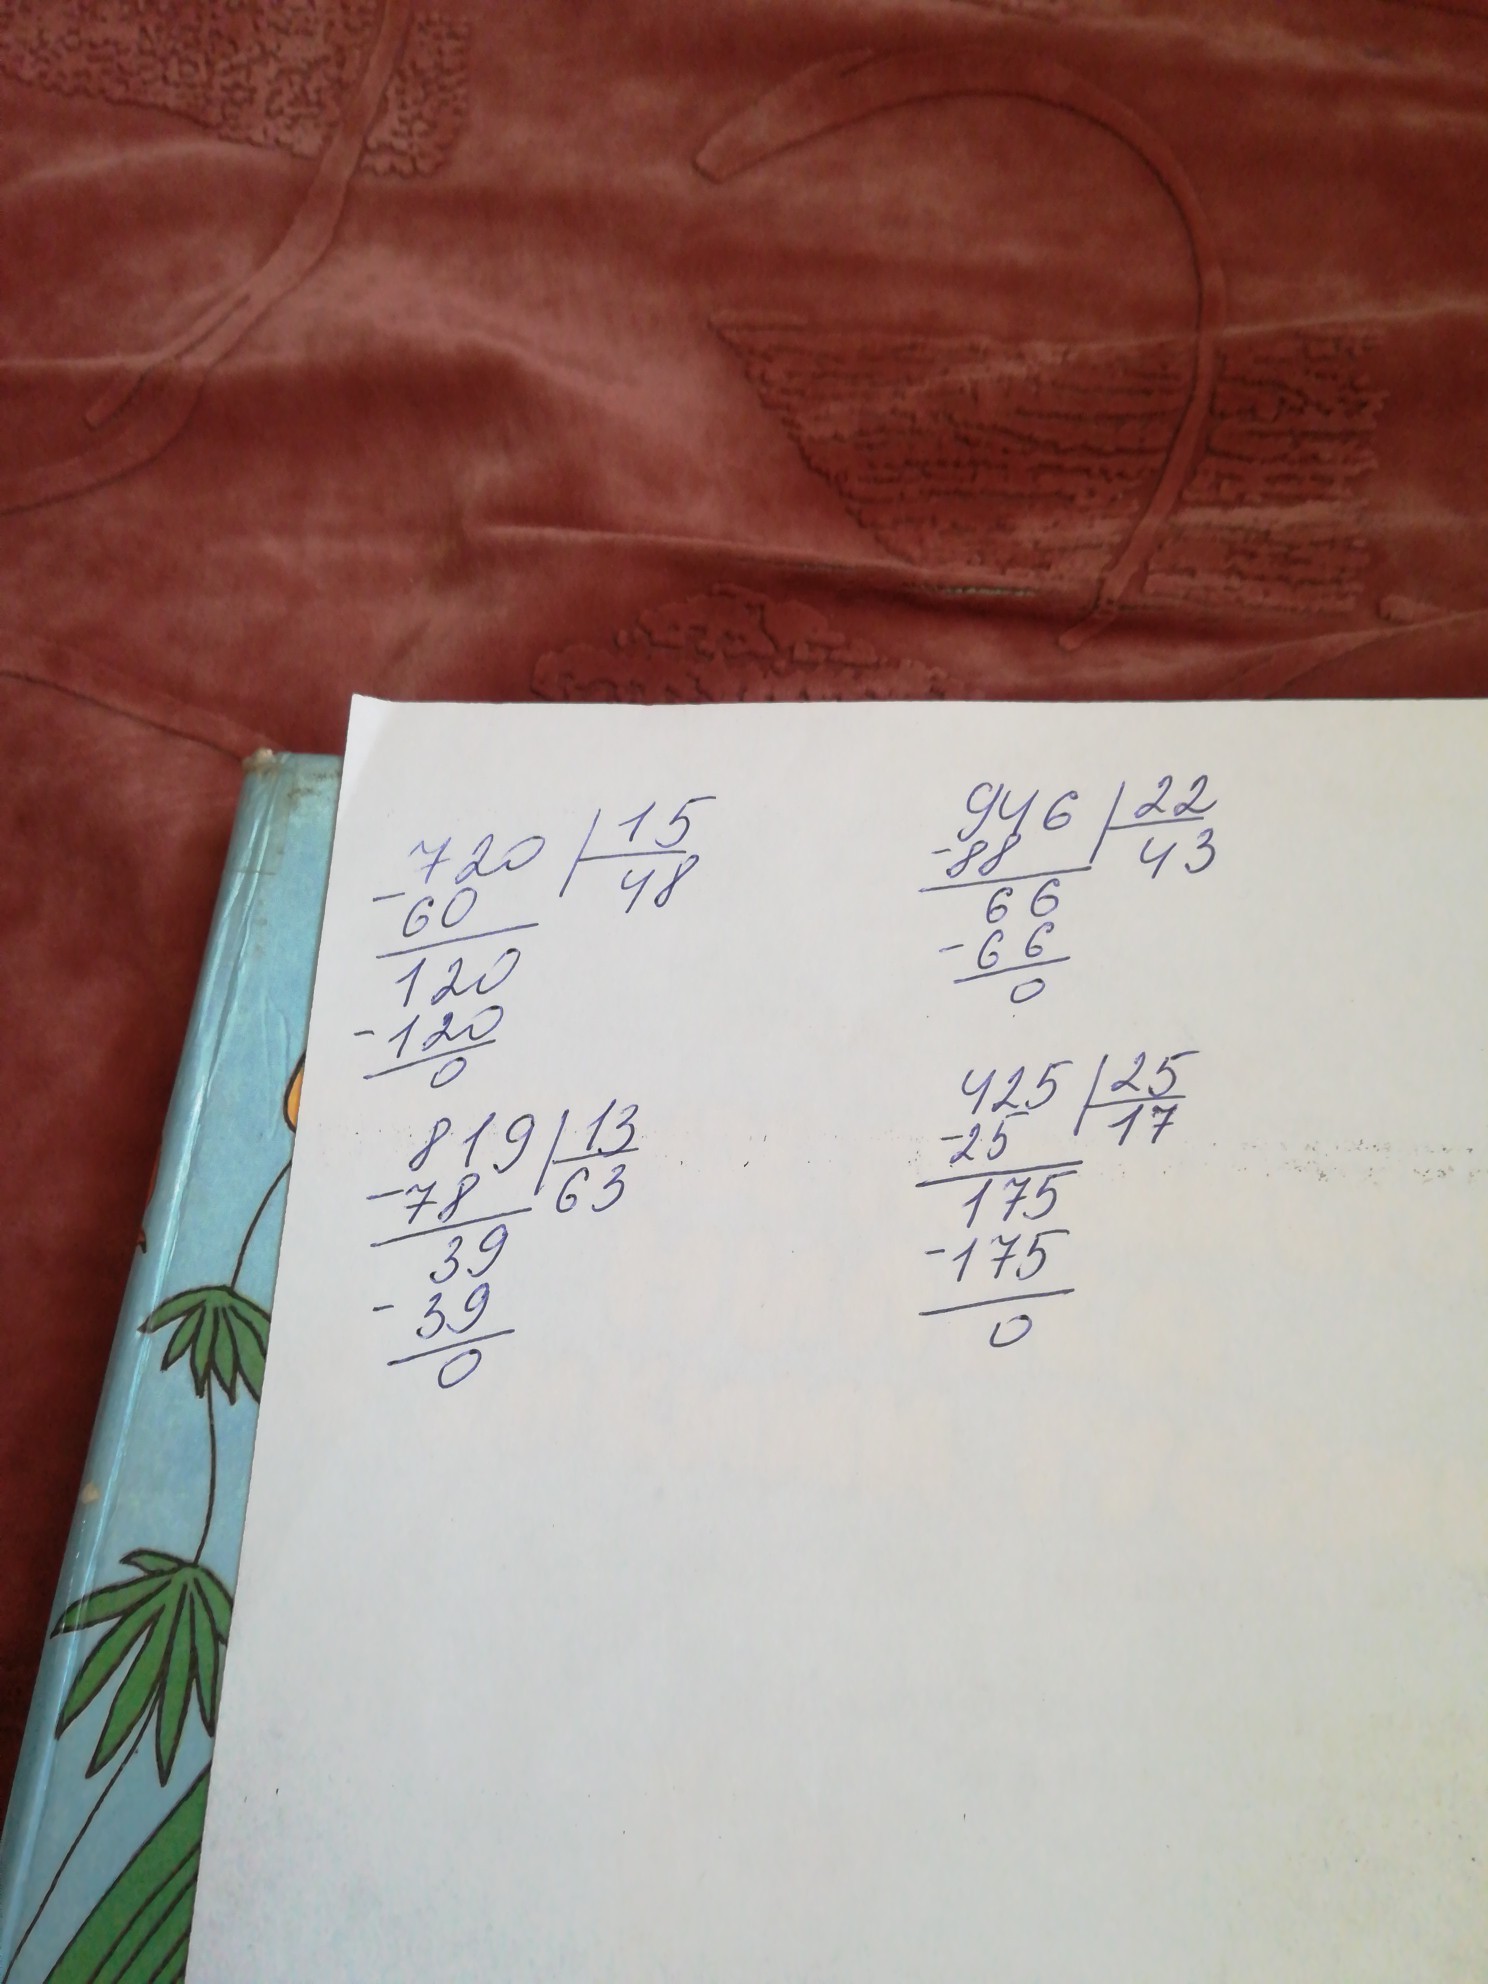 720 | 15
-60 48
120
-120
0
946 | 22
-88 43
66
-66
0
819 | 13
-78 63
39
-39
0
425 | 25
-25 17
175
-175
0